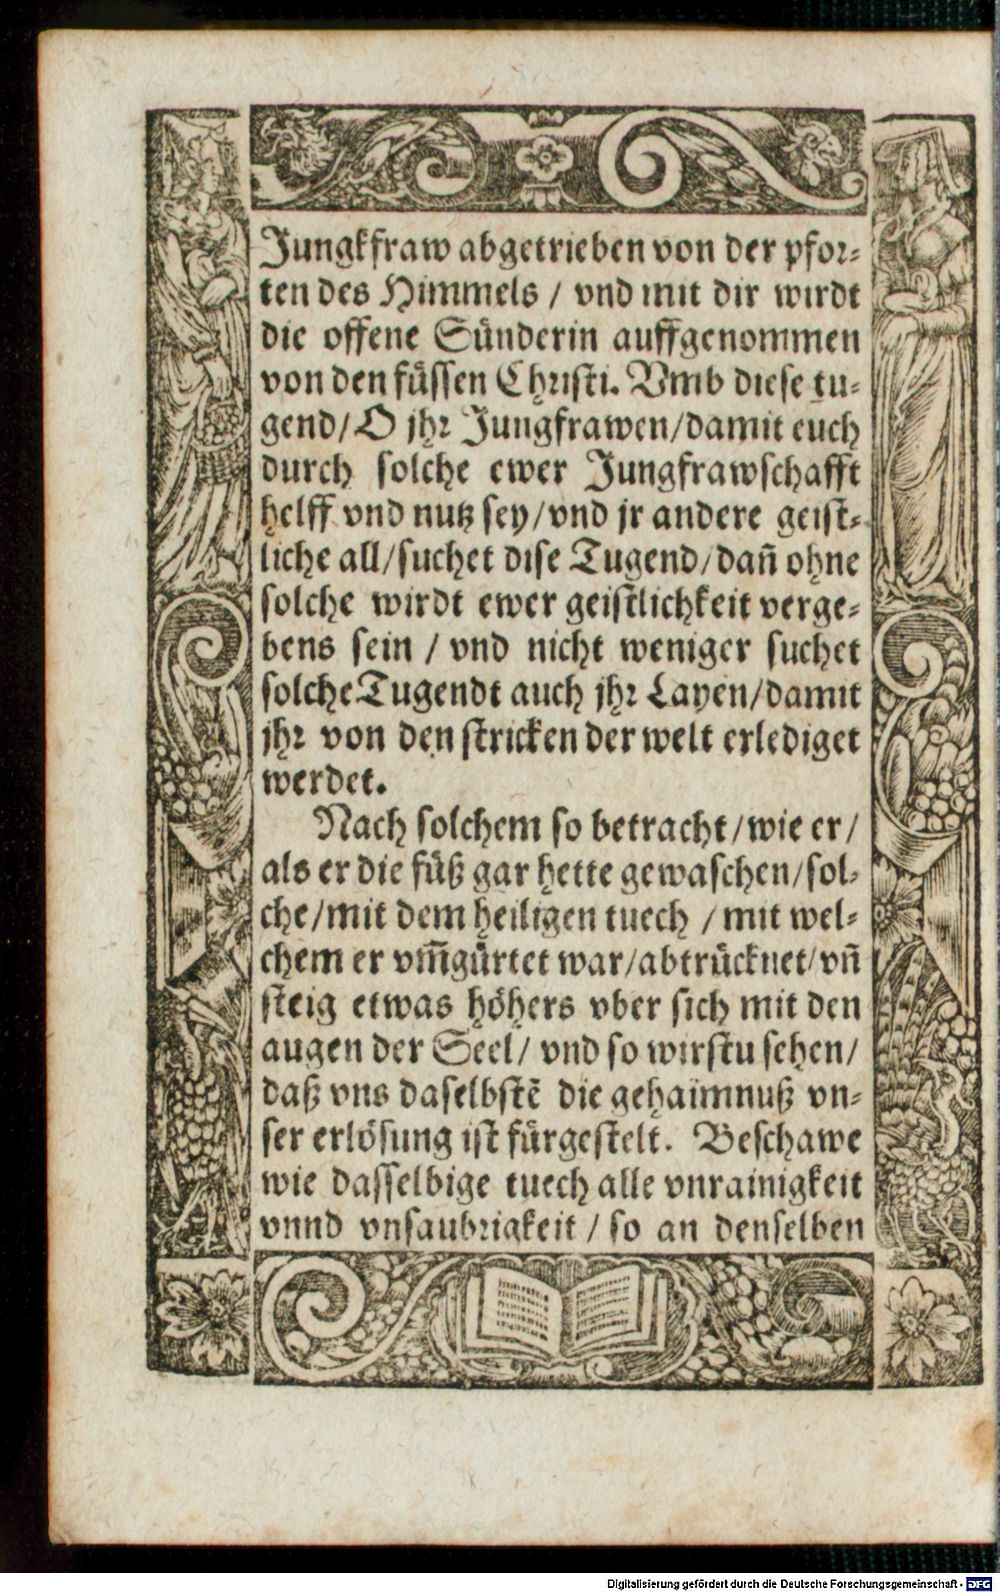 Jungkfraw abgetrieben von der pfor-
ten des Himmels / vnd mit dir wirdt
die offene Sünderin auffgenommen
von den füssen Christi. Vmb diese tu-
gend/ O jhr Jungfrawen/damit euch
durch solche ewer Jungfrawschafft
helff vnd nutz sey/vnd jr andere geist-
liche all/suchet dise Tugend/dañ ohne
solche wirdt ewer geistlichkeit verge-
bens sein / vnd nicht weniger suchet
solche Tugendt auch jhr Layen/damit
jhr von den stricken der welt erlediget
werdet.
Nach solchem so betracht/wie er/
als er die füß gar hette gewaschen/sol-
che/mit dem heiligen tuech / mit wel-
chem er vm̃gürtet war/abtrücknet/vñ
steig etwas höhers vber sich mit den
augen der Seel/ vnd so wirstu sehen/
daß vns daselbstẽ die gehaimnuß vn-
ser erlösung ist fürgestelt. Beschawe
wie dasselbige tuech alle vnrainigkeit
vnnd vnsaubrigkeit / so an denselben
Digitalisierung gefördert durch die Deutsche Forschungsgemeinschaft - DFG